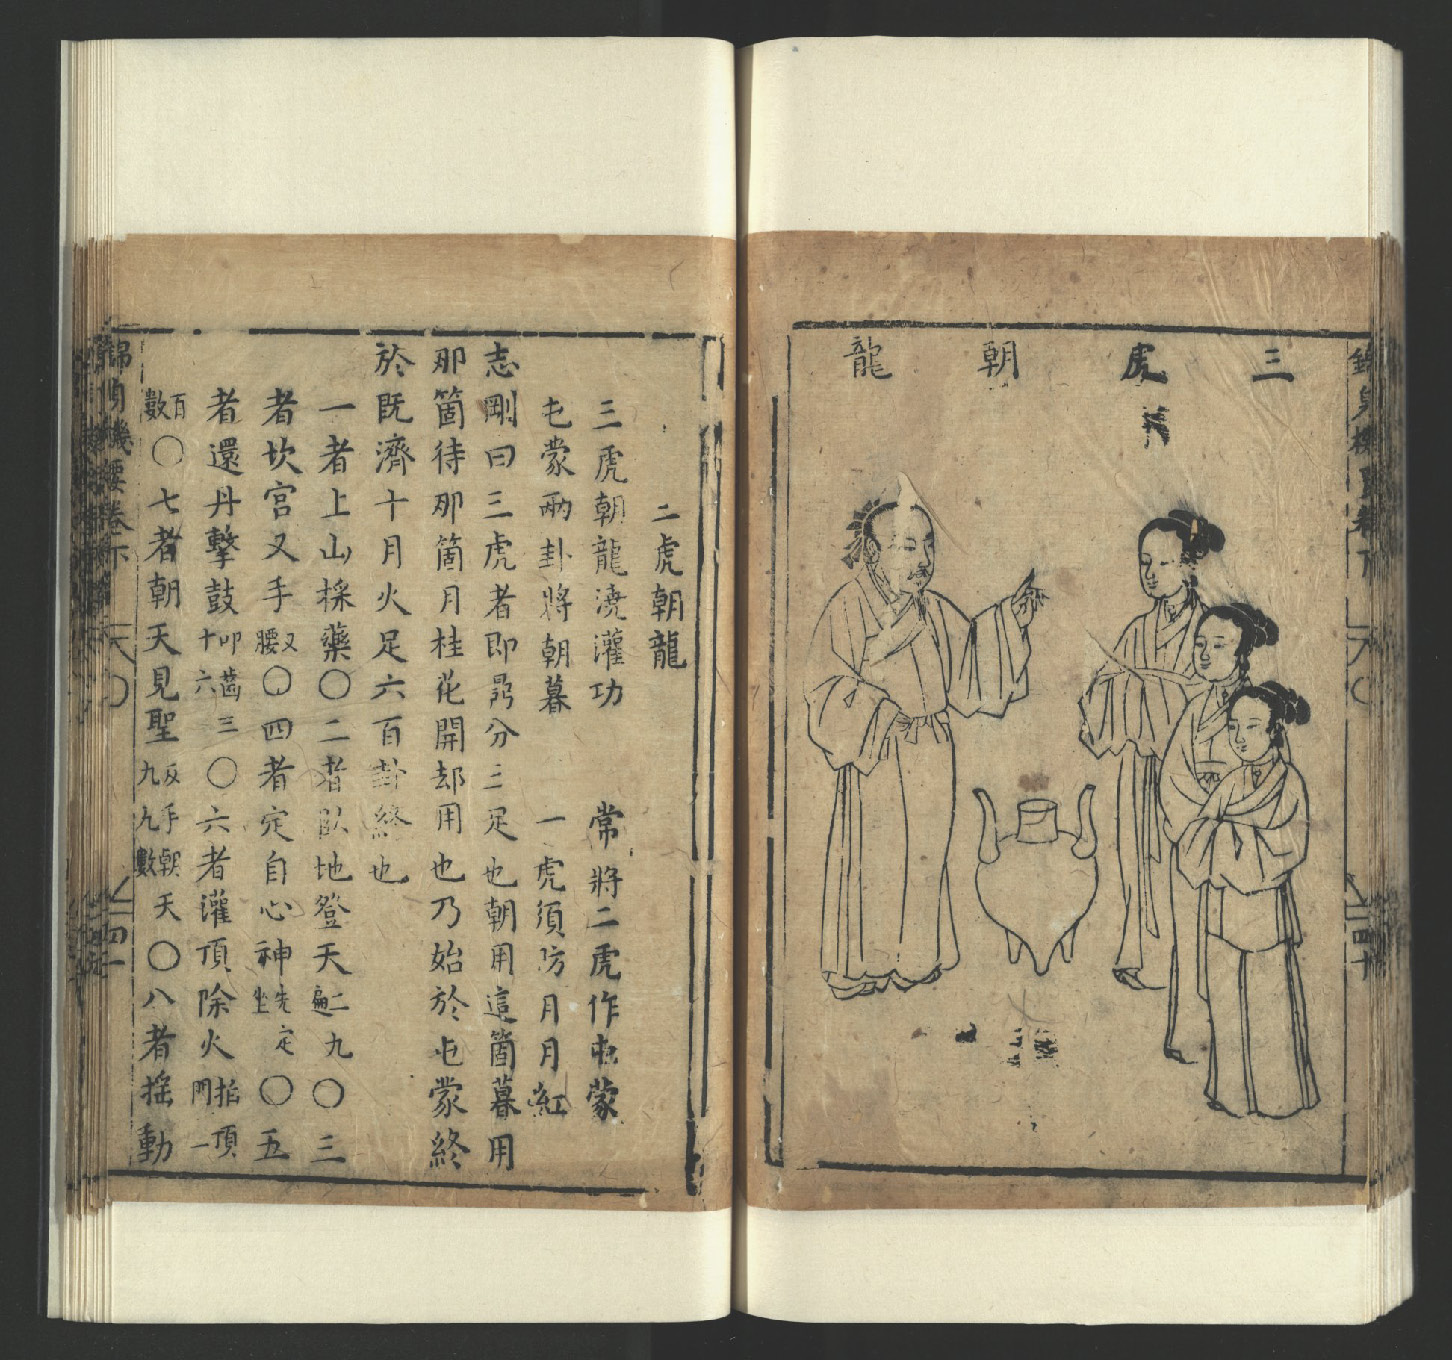 三虎朝龍
二虎朝龍
三虎朝龍澆灌功　常將二虎作屯蒙
屯蒙兩卦將朝暮　一虎須防月月紅
志剛曰三虎者即鼎分三足也朝用這箇暮用
那箇待那箇月桂花開却用也乃始於屯蒙終
於既濟十月火足六百卦終也
一者上山採藥〇二者臥地登天二九遍〇三
者坎宮叉手叉腰〇四者定自心神先定坐〇五
者還丹擊鼓叩齒三十六〇六者灌頂除火掐頂門一
百數〇七者朝天見聖反手朝天九九數〇八者搖動
錦身機要卷下